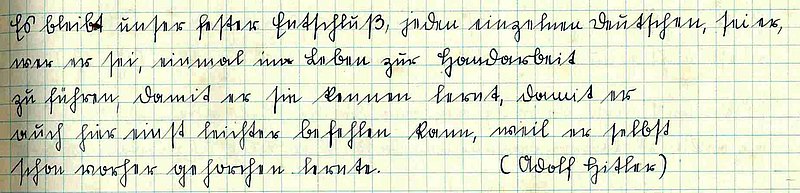 Es bleibt unser fester Entschluß, jeden einzelnen Deutschen, sei er,
wer er sei, einmal im Leben zur Handarbeit
zu führen, damit er sie kennen lernt, damit er
auch hier einst leichter befehlen kann, weil er selbst
schon vorher gehorchen lernte. (Adolf Hitler)